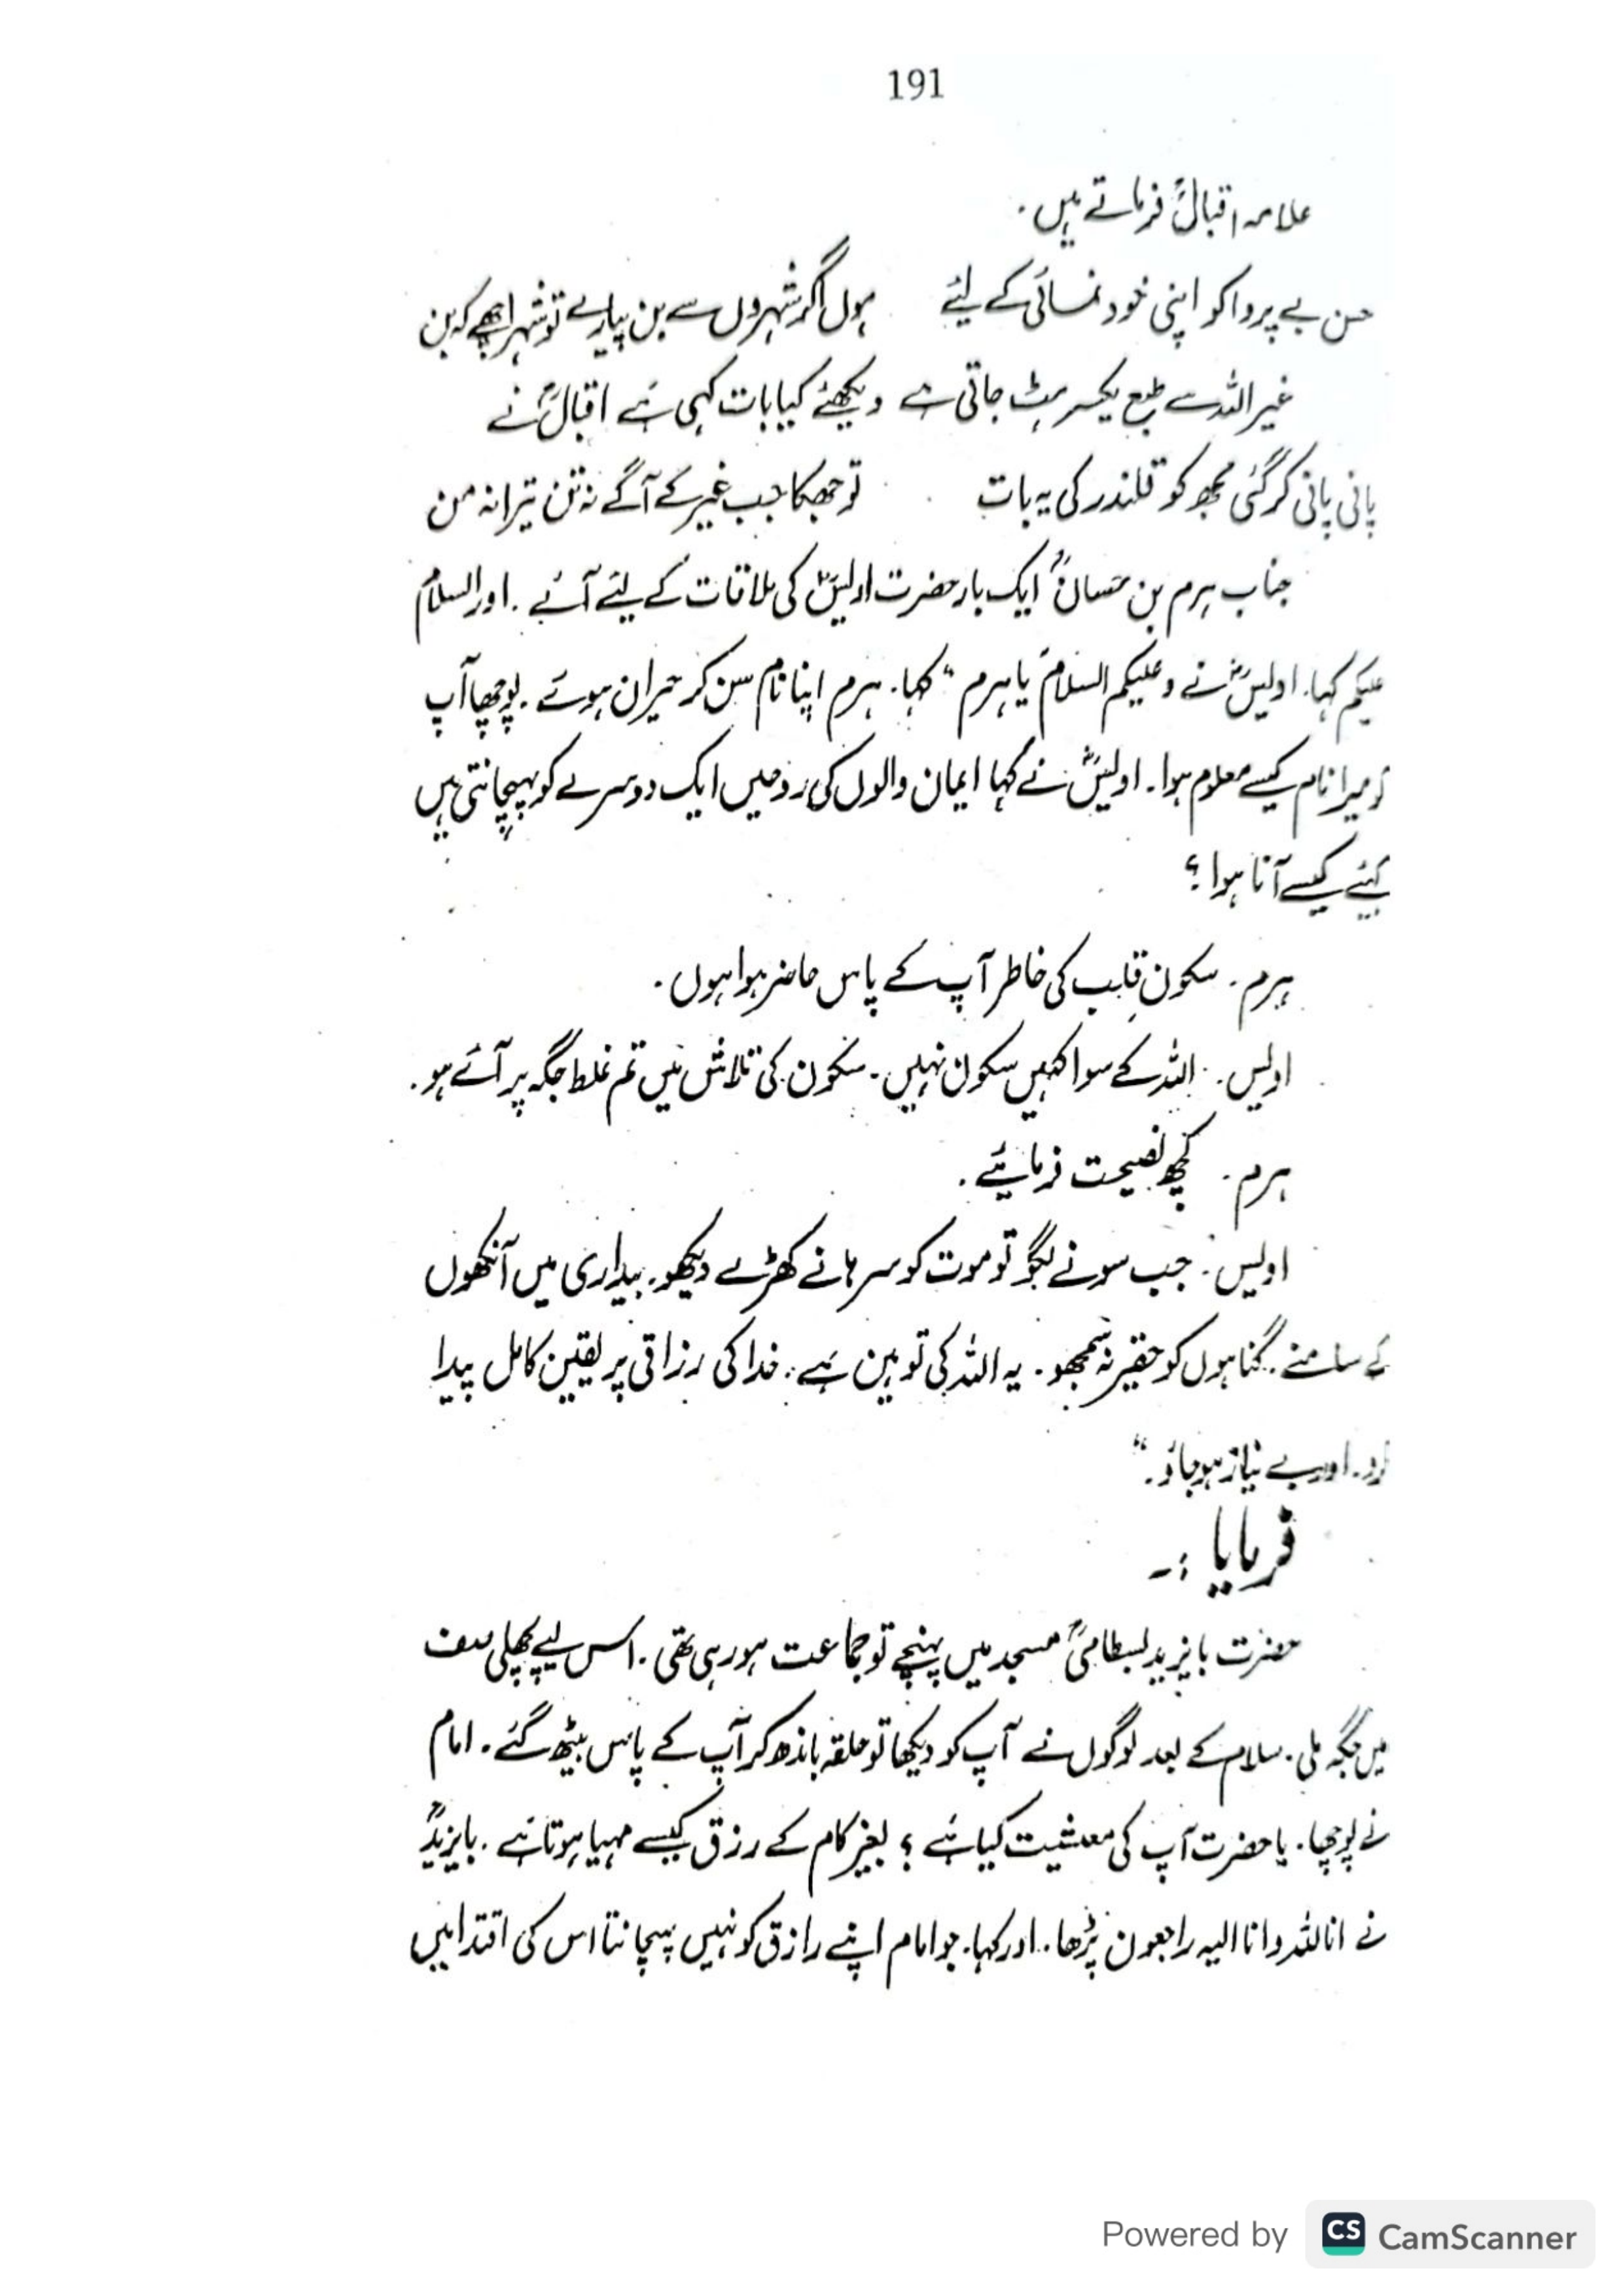 191
علامہ اقبالؒ فرماتے ہیں.
حسن بے پروا کو اپنی خود نمائی کے لیئے ہوں اگر شہروں سے بن پیارے تو شہر اچھے کہ بن
غیر اللہ سے طبع یکسر ہٹ جاتی ہے دیکھئے کیا بات کہی ہے اقبالؒ نے
پانی پانی کر گئی مجھ کو قلندر کی یہ بات تو جھکا جب غیر کے آگے نہ تن تیرا نہ من
جناب ہرم بن حسانؓ ایک بار حضرت اویسؓ کی ملاقات کے لیئے آئے. اور السلام
علیکم کہا. اویسؓ نے وعلیکم السلام یا ہرم" کہا. ہرم اپنا نام سن کر حیران ہوئے. پوچھا آپ
کو میرا نام کیسے معلوم ہوا. اویسؓ نے کہا ایمان والوں کی روحیں ایک دوسرے کو پہچانتی ہیں
کیسے آنا ہوا؟
ہرم. سکون قلب کی خاطر آپ کے پاس حاضر ہوا ہوں.
اویس. اللہ کے سوا کہیں سکون نہیں. سکون کی تلاش میں تم غلط جگہ پر آئے ہو.
ہرم. کچھ نصیحت فرمائیے.
اویس. جب سونے لگو تو موت کو سرہانے کھڑے دیکھو. بیداری میں آنکھوں
کے سامنے. گناہوں کو حقیر نہ سمجھو. یہ اللہ کی توہین ہے. خدا کی رزاقی پر یقین کامل پیدا
کرو. اور بے نیاز ہو جاؤ."
فرمایا :-
حضرت بایزید بسطامیؒ مسجد میں پہنچے تو جماعت ہو رہی تھی. اس لیے پچھلی صف
میں جگہ ملی. سلام کے بعد لوگوں نے آپ کو دیکھا تو حلقہ باندھ کر آپ کے پاس بیٹھ گئے. امام
نے پوچھا. یا حضرت آپ کی معشیت کیا ہے؟ بغیر کام کے رزق کیسے مہیا ہوتا ہے. بایزیدؒ
نے انا للہ وانا الیہ راجعون پڑھا.. اور کہا. جو امام اپنے رازق کو نہیں پہچانتا اس کی اقتدا میں
Powered by CS CamScanner